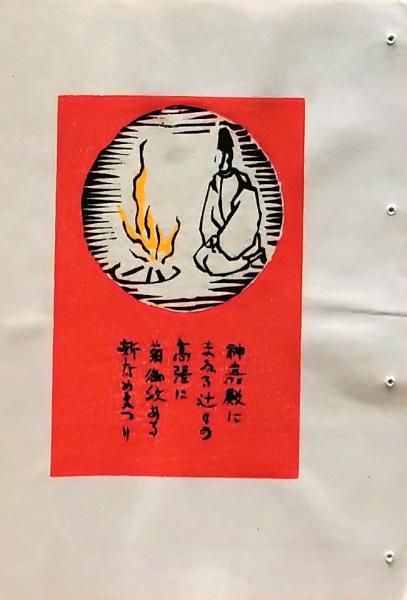 神嘉殿に
まゐる辻々の
高張に
菊御紋ある
新なめまつり